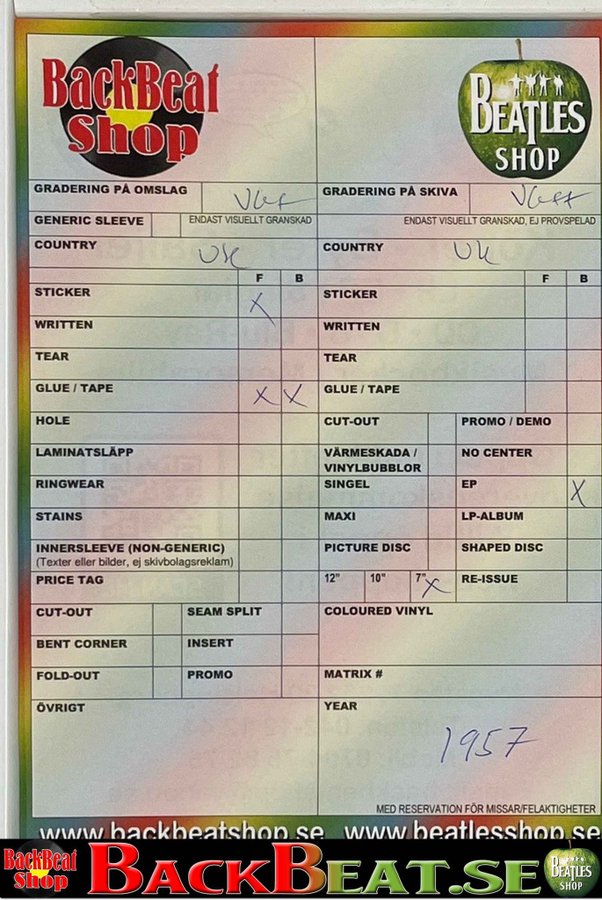 BackBeat
Shop
BEATLES
SHOP
GRADERING PÅ OMSLAG
GRADERING PÅ SKIVA
GENERIC SLEEVE
ENDAST VISUELLT GRANSKAD
ENDAST VISUELLT GRANSKAD, EJ PROVSPELAD
COUNTRY UK
COUNTRY UK
F B
F B
STICKER X
STICKER
WRITTEN
WRITTEN
TEAR
TEAR
GLUE / TAPE X X
GLUE / TAPE
HOLE
CUT-OUT
PROMO / DEMO
LAMINATSLÄPP
VÄRMESKADA /
VINYLBUBBLOR
NO CENTER
RINGWEAR
SINGEL
EP X
STAINS
MAXI
LP-ALBUM
INNERSLEEVE (NON-GENERIC)
(Texter eller bilder, ej skivbolagsreklam)
PICTURE DISC
SHAPED DISC
PRICE TAG
12" 10" 7" X
RE-ISSUE
CUT-OUT
SEAM SPLIT
COLOURED VINYL
BENT CORNER
INSERT
FOLD-OUT
PROMO
MATRIX #
ÖVRIGT
YEAR
1957
MED RESERVATION FÖR MISSAR/FELAKTIGHETER
www.backbeatshop.se www.beatlesshop.se
BackBeat
Shop
BACKBEAT.SE
BEATLES
SHOP